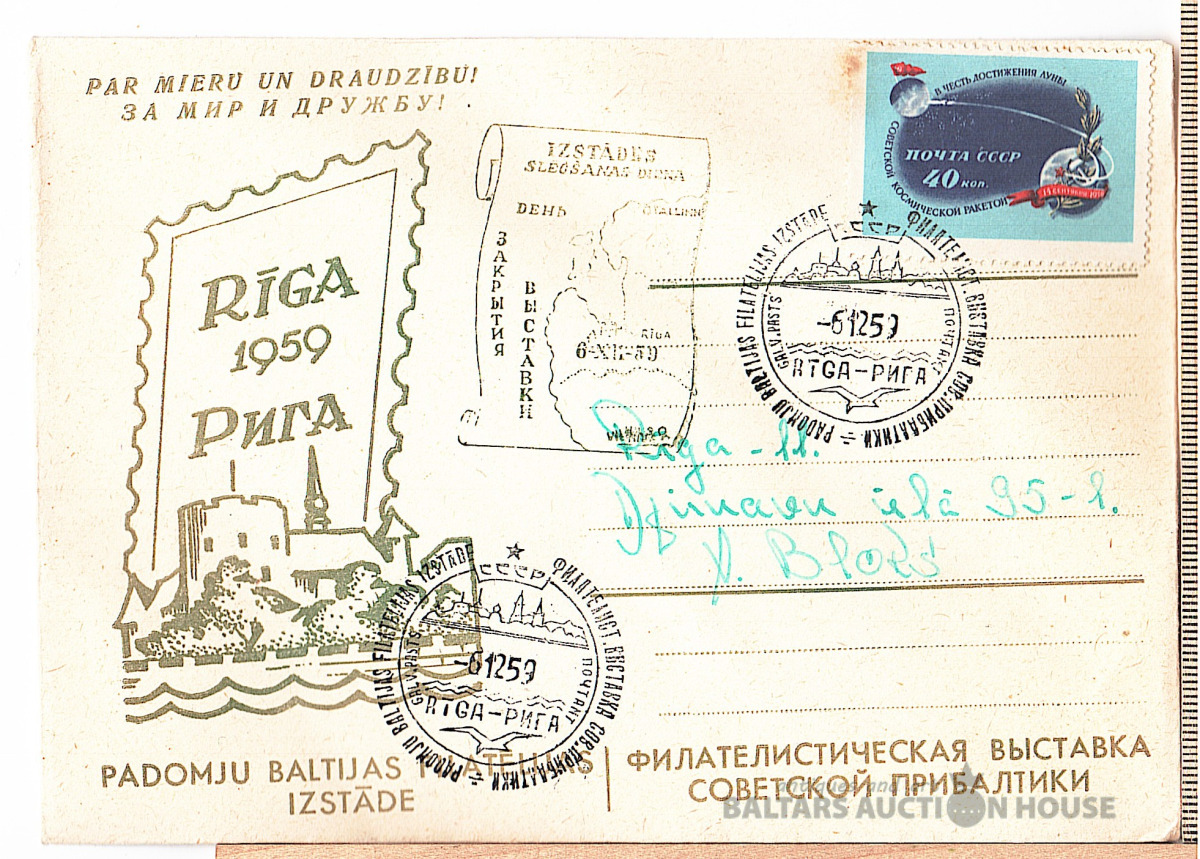 PAR MIERU UN DRAUDZĪBU!
ЗА МИР И ДРУЖБУ!
RĪGA
1959
РИГА
IZSTĀDES
SLĒGŠANAS DIENA
ДЕНЬ
ЗАКРЫТИЯ
ВЫСТАВКИ
TALLINN
RĪGA
6-XII-59
VILNIUS
В ЧЕСТЬ ДОСТИЖЕНИЯ ЛУНЫ
СОВЕТСКОЙ КОСМИЧЕСКОЙ РАКЕТОЙ
ПОЧТА СССР
40 коп.
14 СЕНТЯБРЯ 1959
СССР
PADOMJU BALTIJAS FILATELIJAS IZSTĀDE
ФИЛАТЕЛИСТ ВЫСТАВКА СОВ.ПРИБАЛТИКИ
GALV.PASTS
ПОЧТАМТ
-61259
RĪGA-РИГА
Rīga - 11.
Dzirnavu ielā 95-1.
СССР
PADOMJU BALTIJAS FILATELIJAS IZSTĀDE
ФИЛАТЕЛИСТ ВЫСТАВКА СОВ.ПРИБАЛТИКИ
GALV.PASTS
ПОЧТАМТ
-61259
RĪGA-РИГА
PADOMJU BALTIJAS FILATELIJAS
IZSTĀDE
ФИЛАТЕЛИСТИЧЕСКАЯ ВЫСТАВКА
СОВЕТСКОЙ ПРИБАЛТИКИ
antiques and art
BALTARS AUCTION HOUSE